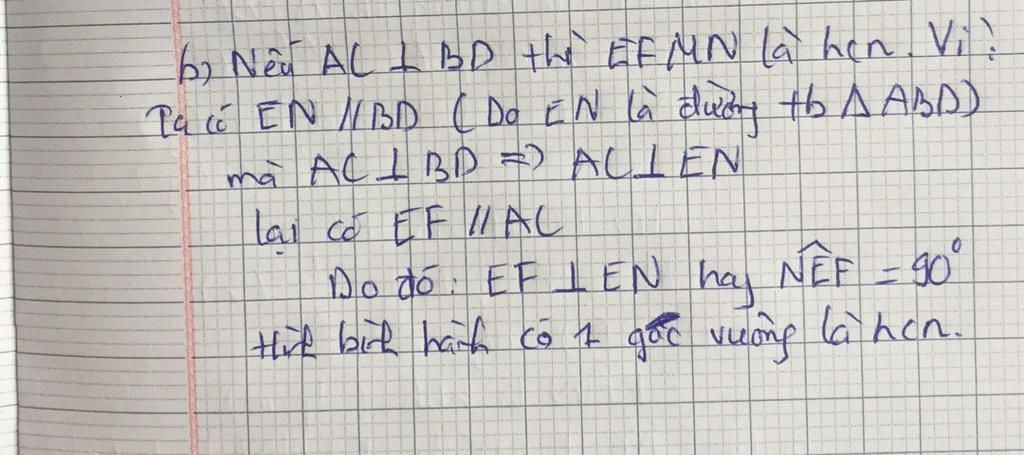 b) Nếu AC ⊥ BD thì EFMN là hcn. Vì:
Ta có EN // BD ( Do EN là đường tb Δ ABD)
mà AC ⊥ BD => AC ⊥ EN
lại có EF // AC
Do đó: EF ⊥ EN hay N̂EF = 90°
Hình bình hành có 1 góc vuông là hcn.